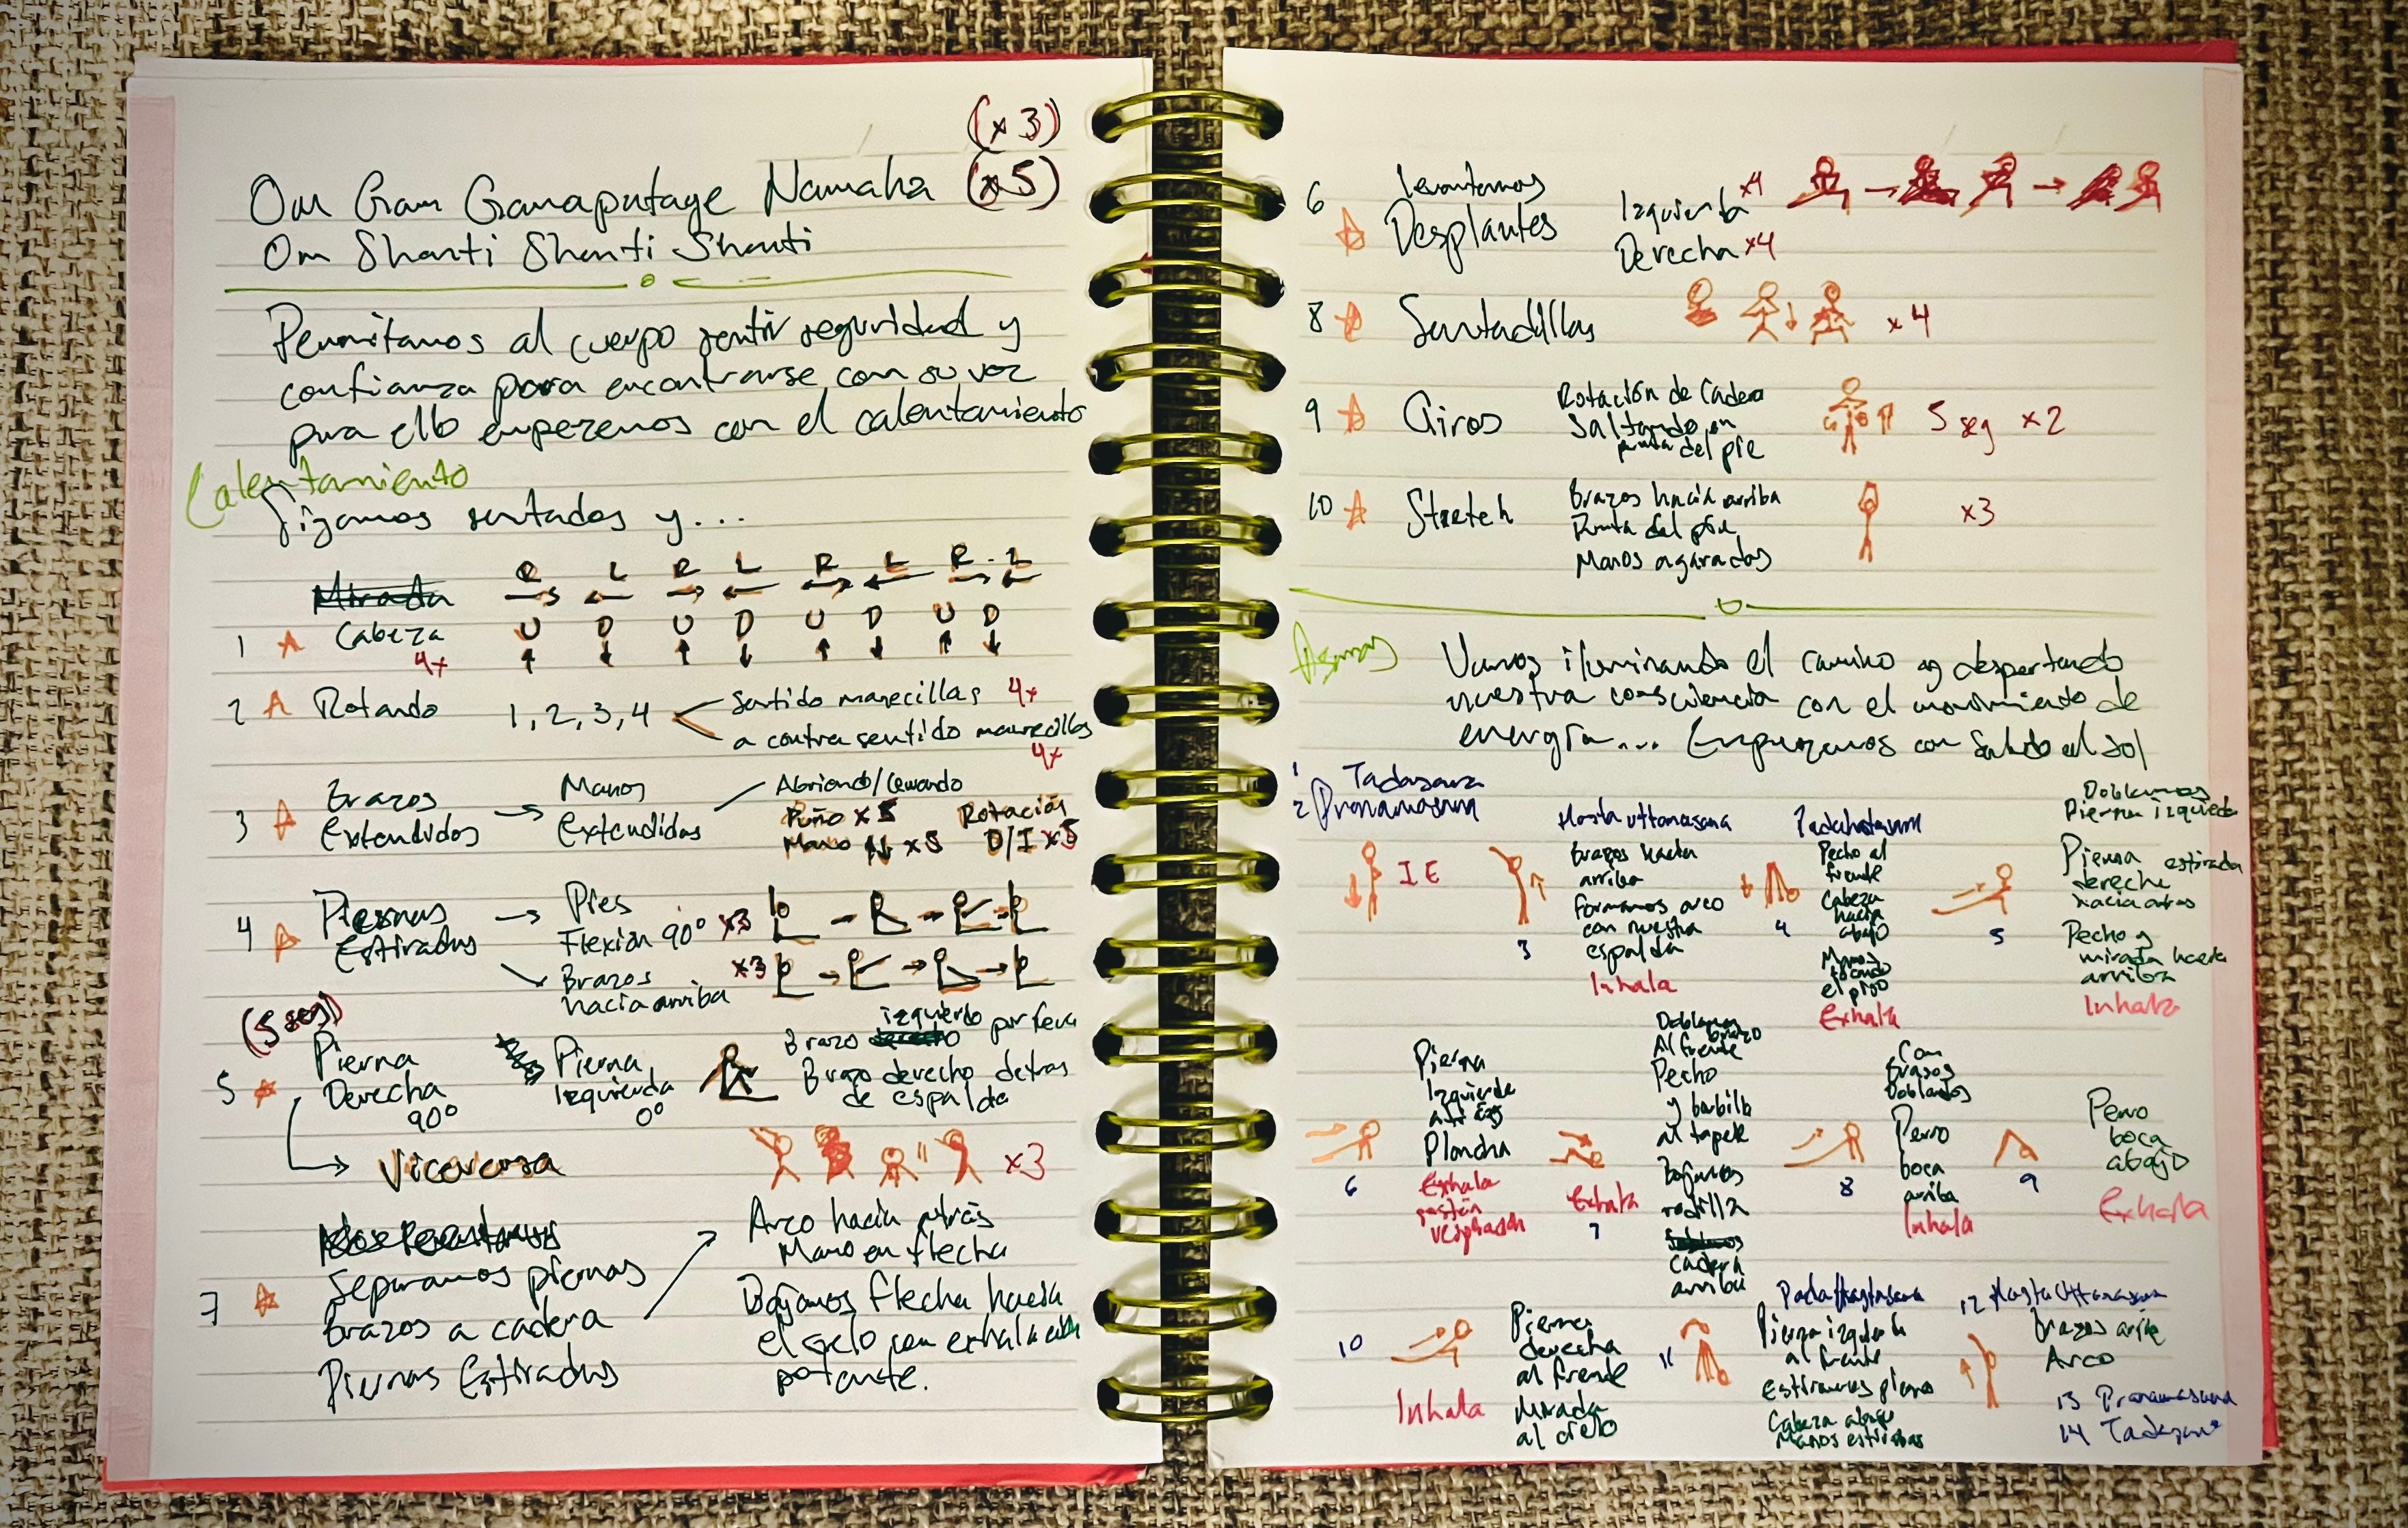 (x3)
Om Gam Ganaputaye Namaha (x5)
Om Shanti Shanti Shanti
Permitamos al cuerpo sentir seguridad y
confianza para encontrarse con su voz
para ello empezemos con el calentamiento
Calentamiento
Sigamos sentados y...
Mirada R L R L R L R L
U D U D U D U D
1 Cabeza
4x
2 Rotando 1, 2, 3, 4 Sentido manecillas 4x
a contra sentido manecillas
4x
3 Brazos Extendidos → Manos Extendidas Abriendo/Cerrando
Puño x5 Rotación
Mano ↑↓ x5 D/I x5
4 Piernas Estiradas → Pies
Flexión 90° x3
Brazos hacia arriba x3
(5 seg)
5 Pierna Derecha 90° Pierna Izquierda 0°
Brazo izquierdo por fuera
Brazo derecho detras
de espalda
Viceversa x3
7 Separamos piernas
Brazos a cadera
Piernas Estiradas
Arco hacia atrás
Mano en flecha
Bajamos flecha hacia
el cielo con exhalación
potente.
6 levantamos
Desplantes Izquierda x4
Derecha x4
8 Sentadillas x4
9 Giros Rotación de Cadera
Saltando en
punta del pie
5 seg x2
10 Stretch Brazos hacia arriba
Punta del pie
Manos agarradas
x3
Asanas
Vamos iluminando el camino y despertando
nuestra consciencia con el movimiento de
energía... Empezemos con Saludo al sol
1 Tadasana
2 Pranamasana
I E
3
Hasta uttanasana
Brazos hacia
arriba
formamos arco
con nuestra
espalda
Inhala
4
Padahastasana
Pecho al
frente
Cabeza
hacia
abajo
Manos
tocando
el piso
Exhala
5
Doblamos
Pierna izquierda
Pierna estirada
derecha
hacia atras
Pecho y
mirada hacia
arriba
Inhala
6
Pierna
Izquierda
atrás
Plancha
Exhala
sostén
respiración
7
Exhala
Doblamos
Al frente brazo
Pecho
y barbilla
al tapete
Bajamos
rodilla
cadera
arriba
8
Con
Brazos
Doblados
Perro
boca
arriba
Inhala
9
Perro
boca
abajo
Exhala
10
Inhala
Pierna
derecha
al frente
Mirada
al cielo
11
Padahastasana
Pierna izquierda
al frente
estiramos piernas
Cabeza abajo
Manos estiradas
12 Hasta Uttanasana
Brazos arriba
Arco
13 Pranamasana
14 Tadasana